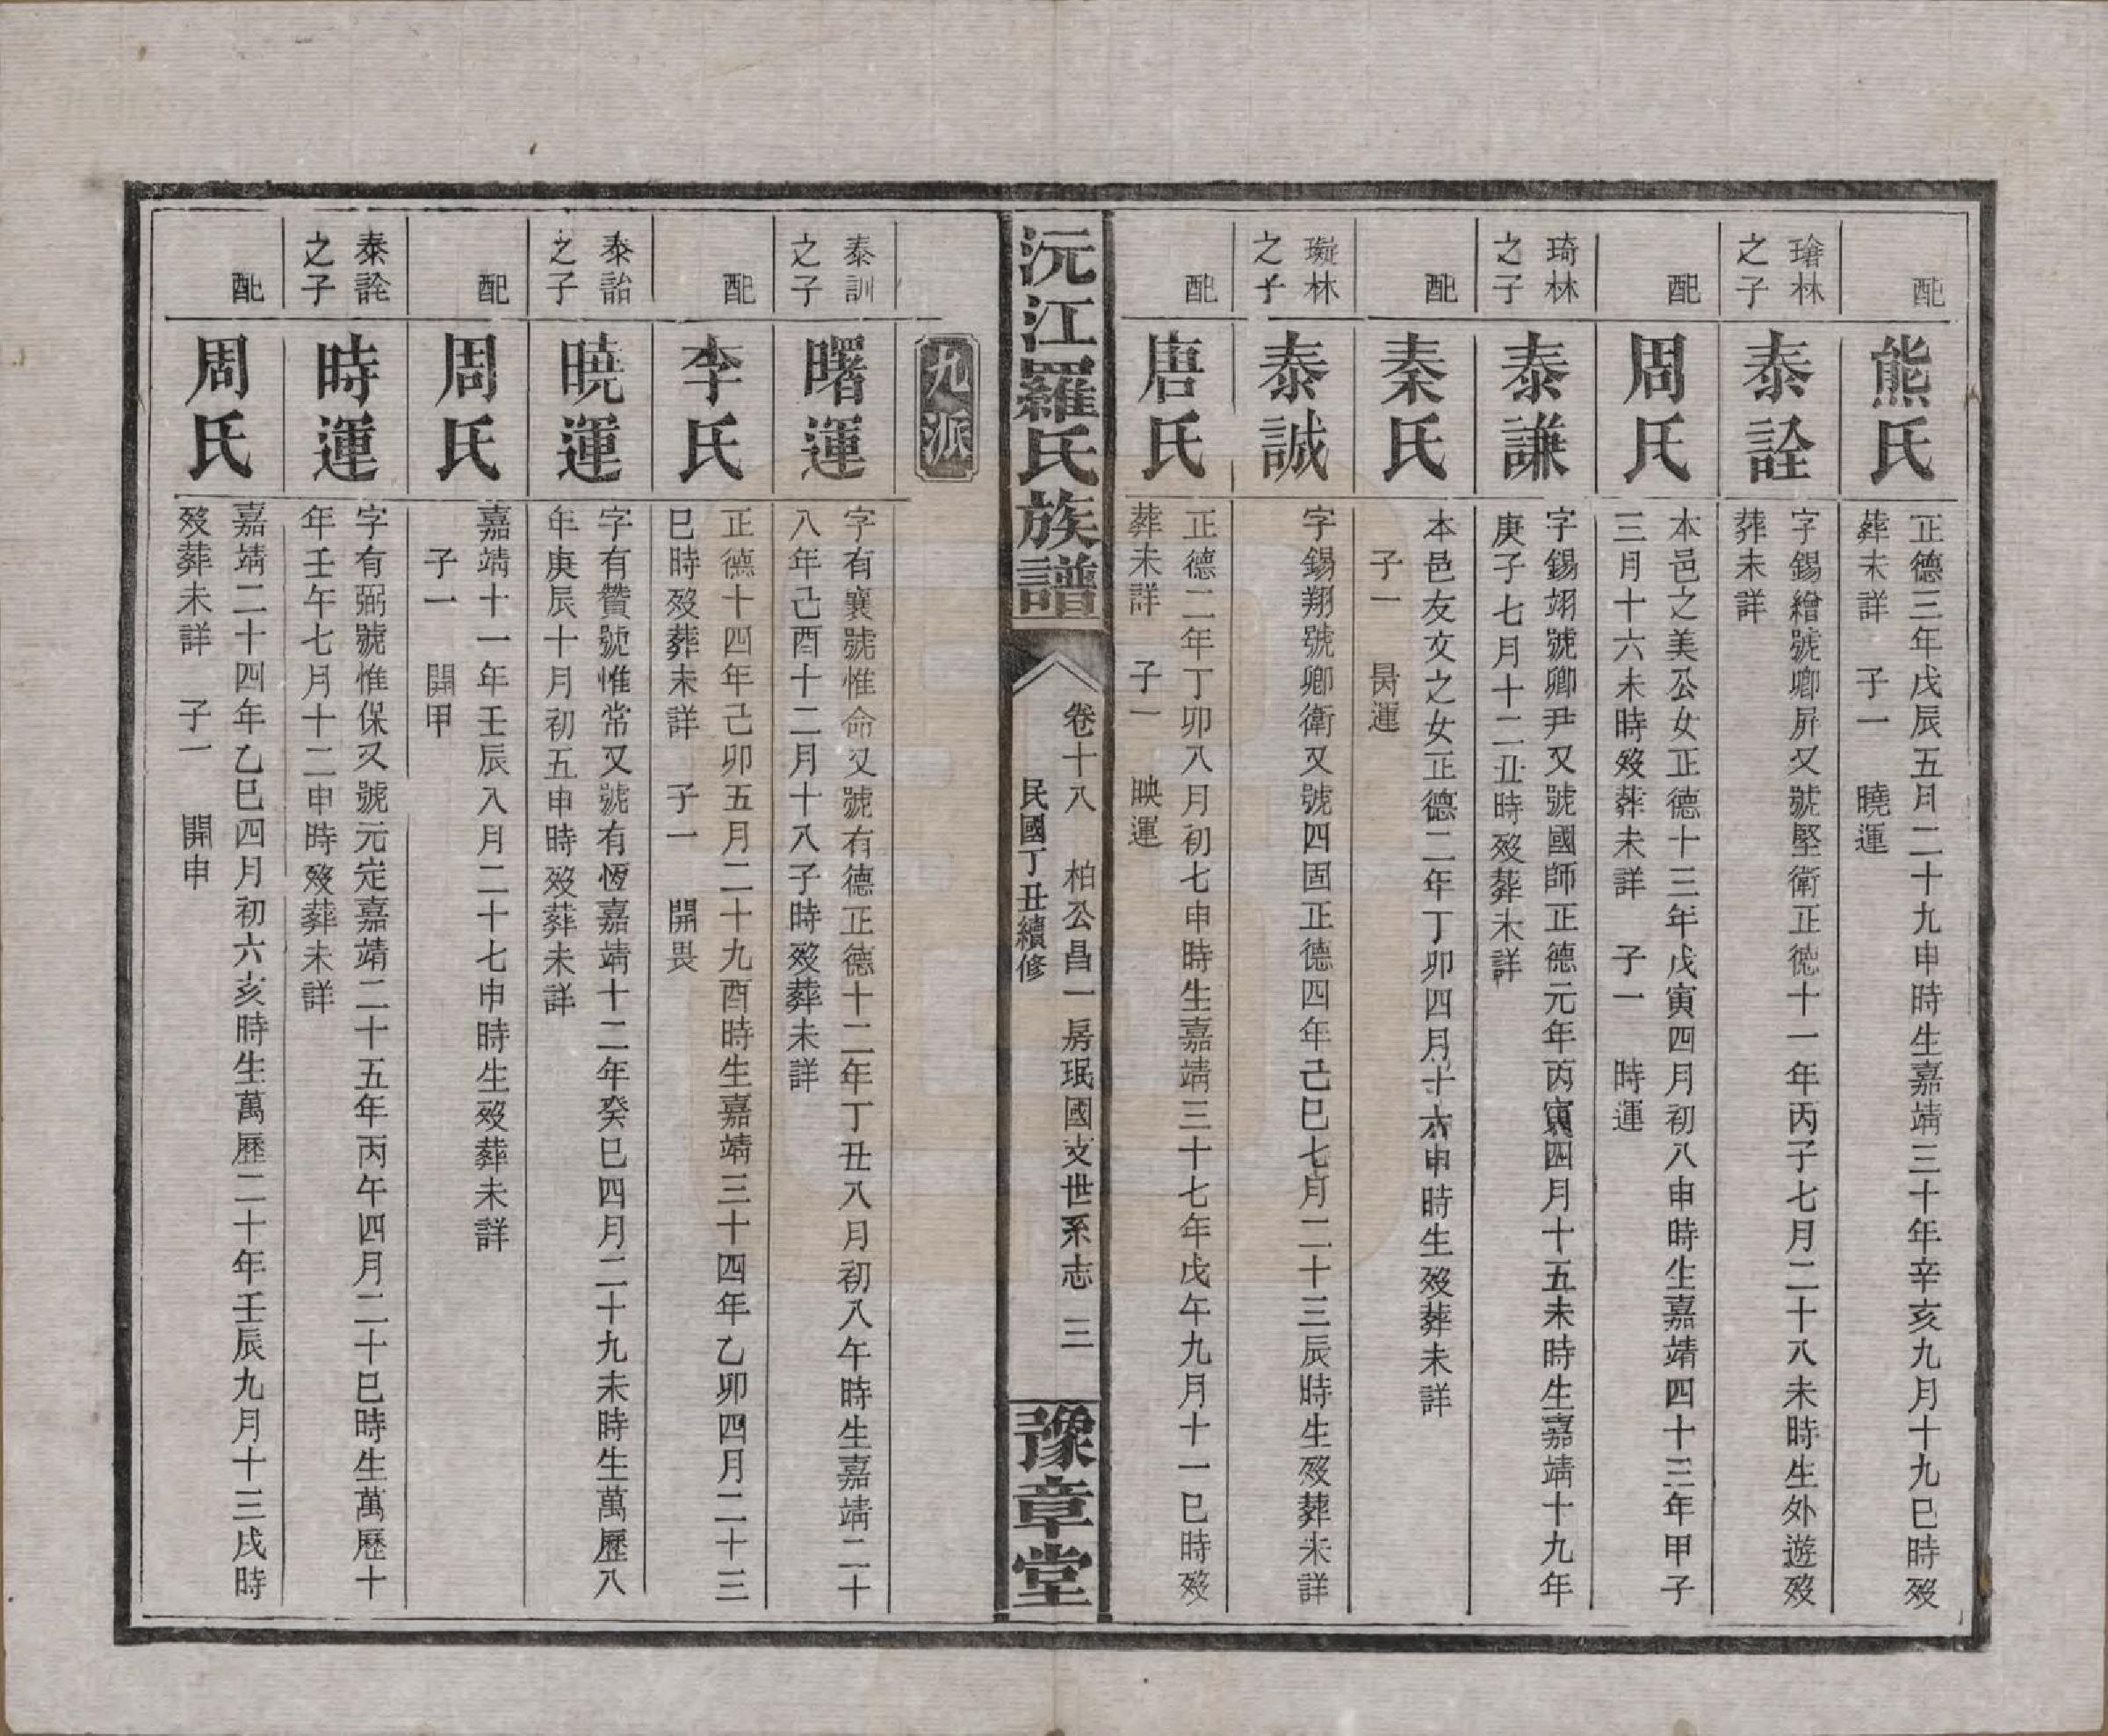 配
熊氏
正德三年戊辰五月二十九申時生嘉靖三十年辛亥九月十九巳時歿
葬未詳　子一　曉運
瓊林
之子
泰詮
字錫繪號卿屏又號堅衛正德十一年丙子七月二十八未時生外遊歿
葬未詳
配
周氏
本邑之美公女正德十三年戊寅四月初八申時生嘉靖四十三年甲子
三月十六未時歿葬未詳　子一　時運
琦林
之子
泰謙
字錫翊號卿尹又號國師正德元年丙寅四月十五未時生嘉靖十九年
庚子七月十二丑時歿葬未詳
配
秦氏
本邑友文之女正德二年丁卯四月十六申時生歿葬未詳
子一　昺運
璇林
之子
泰誠
字錫翔號卿衛又號四固正德四年己巳七月二十三辰時生歿葬未詳
配
唐氏
正德二年丁卯八月初七申時生嘉靖三十七年戊午九月十一巳時歿
葬未詳　子一　映運
沅江羅氏族譜
卷十八　柏公昌一房珉國支世系志　三
民國丁丑續修
豫章堂
九派
泰訓
之子
曙運
字有襄號惟命又號有德正德十二年丁丑八月初八午時生嘉靖二十
八年己酉十二月十八子時歿葬未詳
配
李氏
正德十四年己卯五月二十九酉時生嘉靖三十四年乙卯四月二十三
巳時歿葬未詳　子一　開畏
泰詒
之子
曉運
字有贊號惟常又號有恆嘉靖十二年癸巳四月二十九未時生萬歷八
年庚辰十月初五申時歿葬未詳
配
周氏
嘉靖十一年壬辰八月二十七申時生歿葬未詳
子一　開甲
泰詮
之子
時運
字有弼號惟保又號元定嘉靖二十五年丙午四月二十巳時生萬歷十
年壬午七月十二申時歿葬未詳
配
周氏
嘉靖二十四年乙巳四月初六亥時生萬歷二十年壬辰九月十三戌時
歿葬未詳　子一　開申